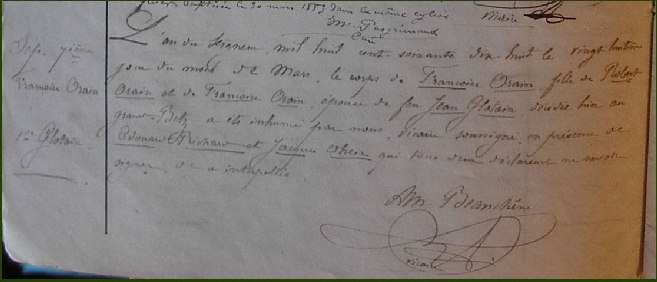 baptisée le 30 mars 1853 dans la même église
vicaire
Curé
L'an du Seigneur mil huit cent soixante dix huit le vingt huitième
jour du mois de Mars, le corps de Françoise Orain fille de Robert
Orain et de Françoise Orain, épouse de feu Jean Glatain décédée hier au
grand-Betz a été inhumé par nous, vicaire soussigné, en présence de
Edouard et Jacques qui tous deux déclarent ne savoir
signer de ce interpellés
Sép. 7ième
Françoise Orain
Glatain
Am. Blanchêne
vicaire